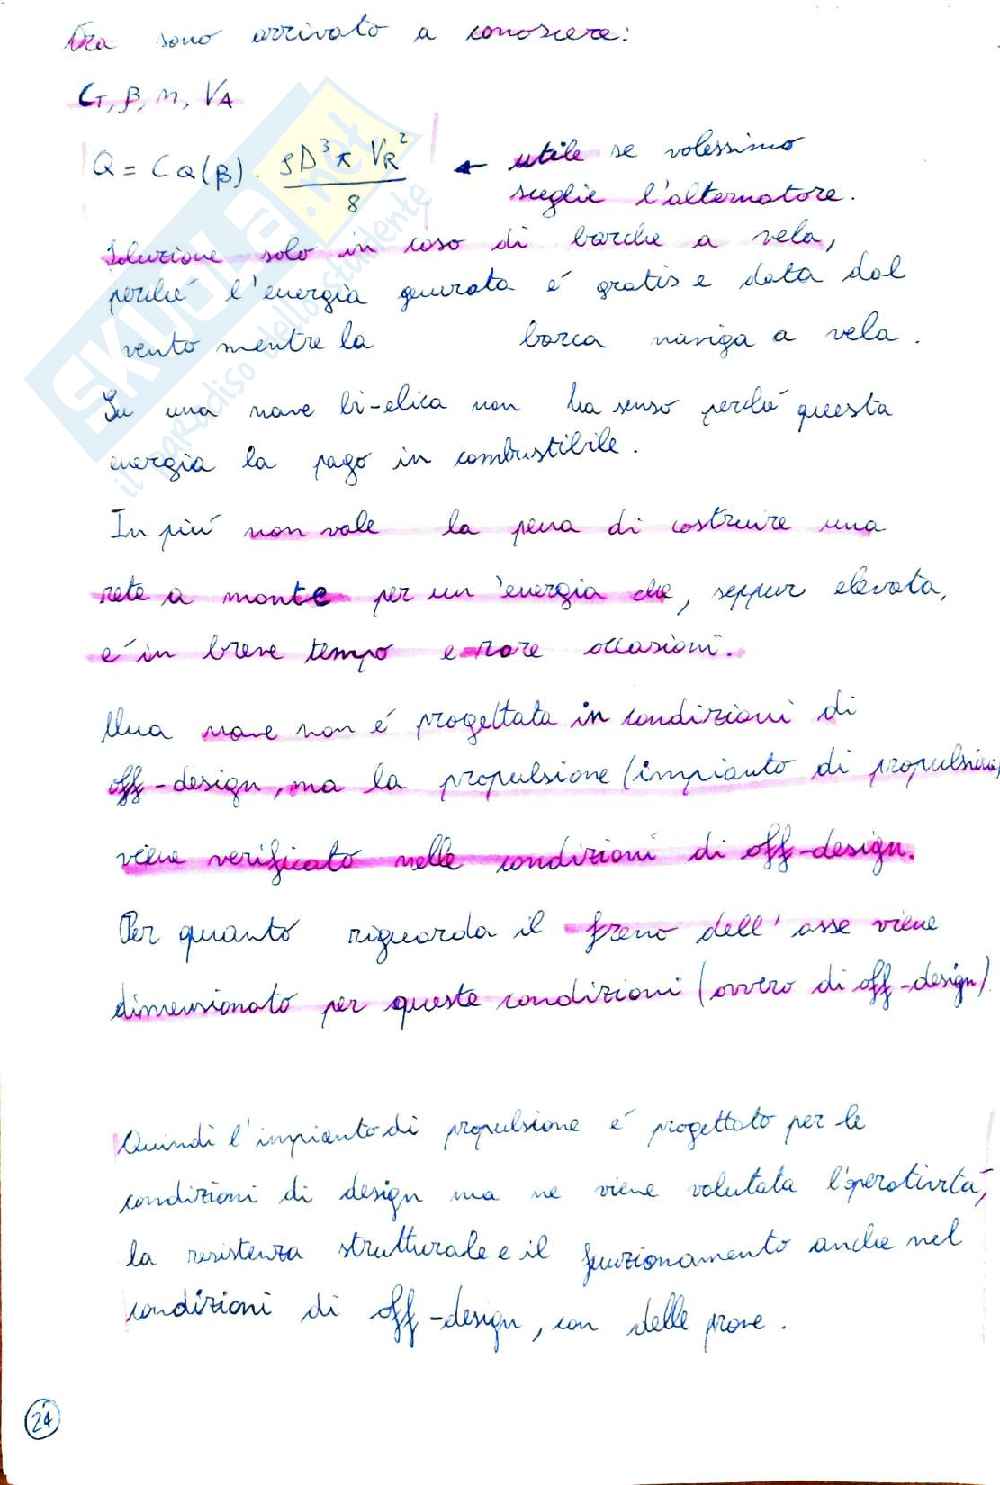 Ora sono arrivato a conoscere:
CT, β, n, VA
Q = CQ(β) · ρD³π VR² / 8 ← utile se volessimo
scegliere l'alternatore.
Soluzione solo in caso di barche a vela,
perché l'energia generata é gratis e data dal
vento mentre la barca naviga a vela.
Su una nave bi-elica non ha senso perché questa
energia la pago in combustibile.
In più non vale la pena di costruire una
rete a monte per un'energia che, seppur elevata,
é in breve tempo e rare occasioni.
Una nave non é progettata in condizioni di
off-design, ma la propulsione (impianto di propulsione)
viene verificato nelle condizioni di off-design.
Per quanto riguarda il freno dell'asse viene
dimensionato per queste condizioni (ovvero di off-design)
Quindi l'impianto di propulsione é progettato per le
condizioni di design ma ne viene valutata l'operatività,
la resistenza strutturale e il funzionamento anche nel
condizioni di off-design, con delle prove.
24
SKUOLA.net
il paradiso dello studente